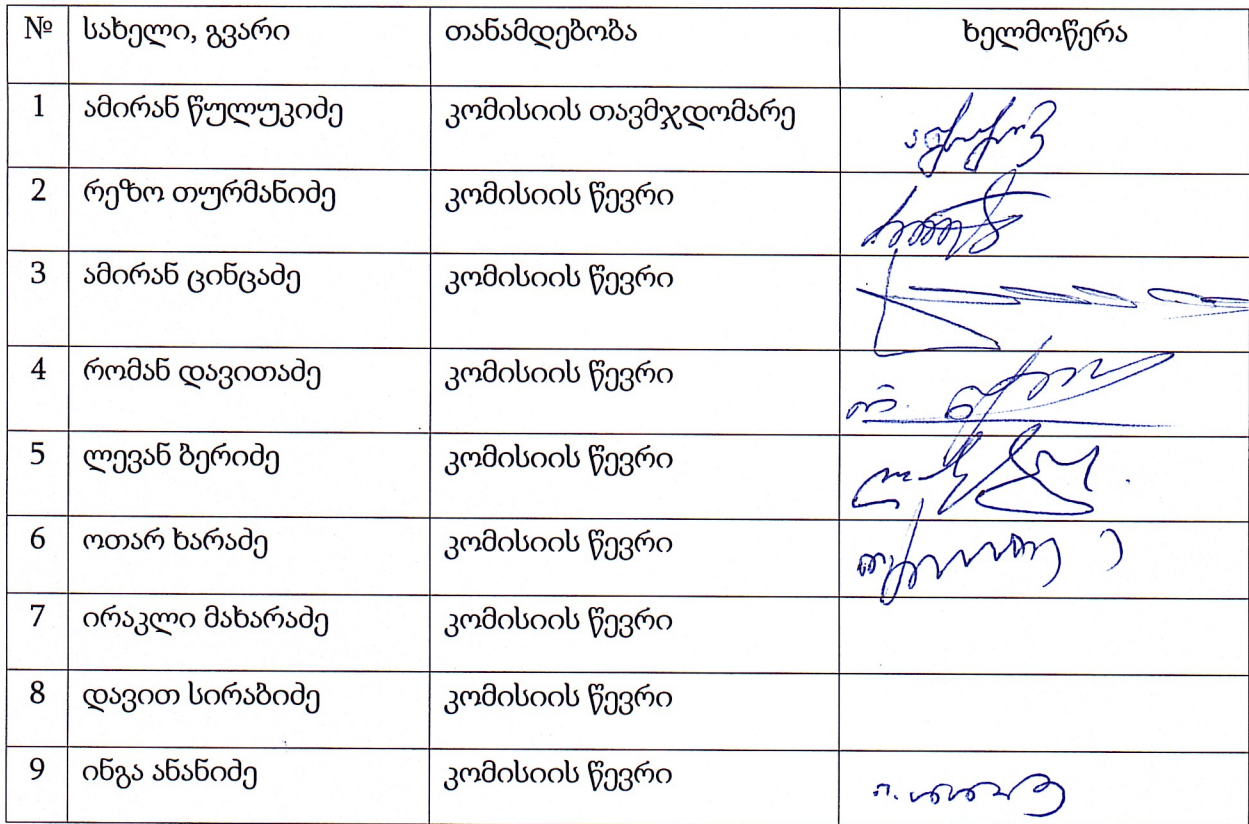 № სახელი, გვარი თანამდებობა ხელმოწერა
1 ამირან წულუკიძე კომისიის თავმჯდომარე
2 რეზო თურმანიძე კომისიის წევრი
3 ამირან ცინცაძე კომისიის წევრი
4 რომან დავითაძე კომისიის წევრი
5 ლევან ბერიძე კომისიის წევრი
6 ოთარ ხარაძე კომისიის წევრი
7 ირაკლი მახარაძე კომისიის წევრი
8 დავით სირაბიძე კომისიის წევრი
9 ინგა ანანიძე კომისიის წევრი